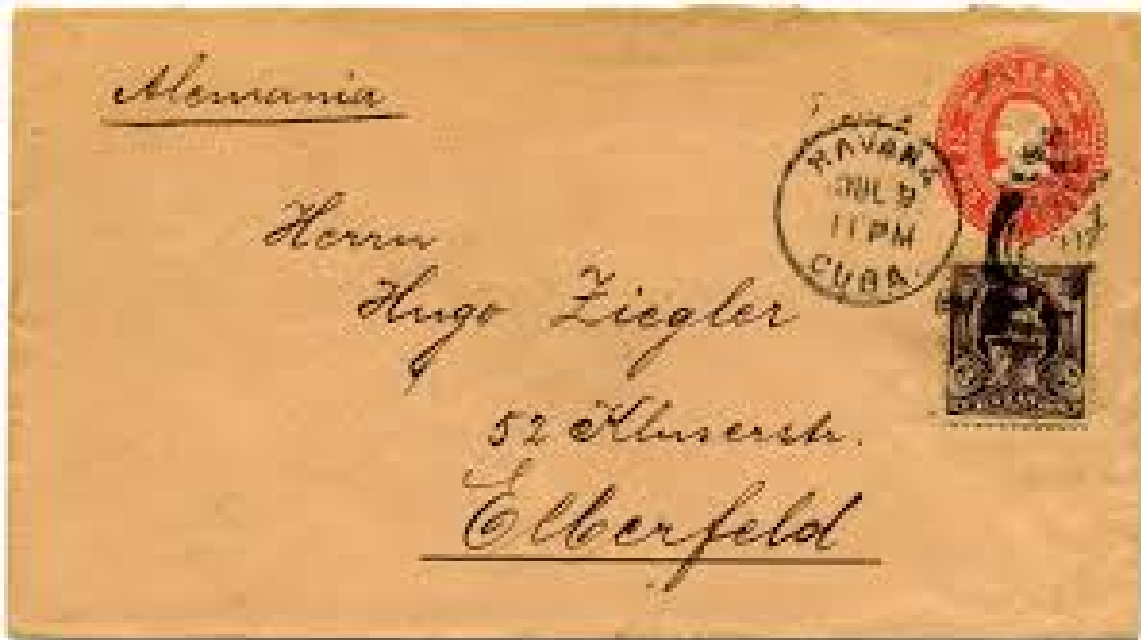 Alemania
HAVANA
JUL 9
11 PM
CUBA.
Herrn
Hugo Ziegler
52 Kluserstr.
Elberfeld